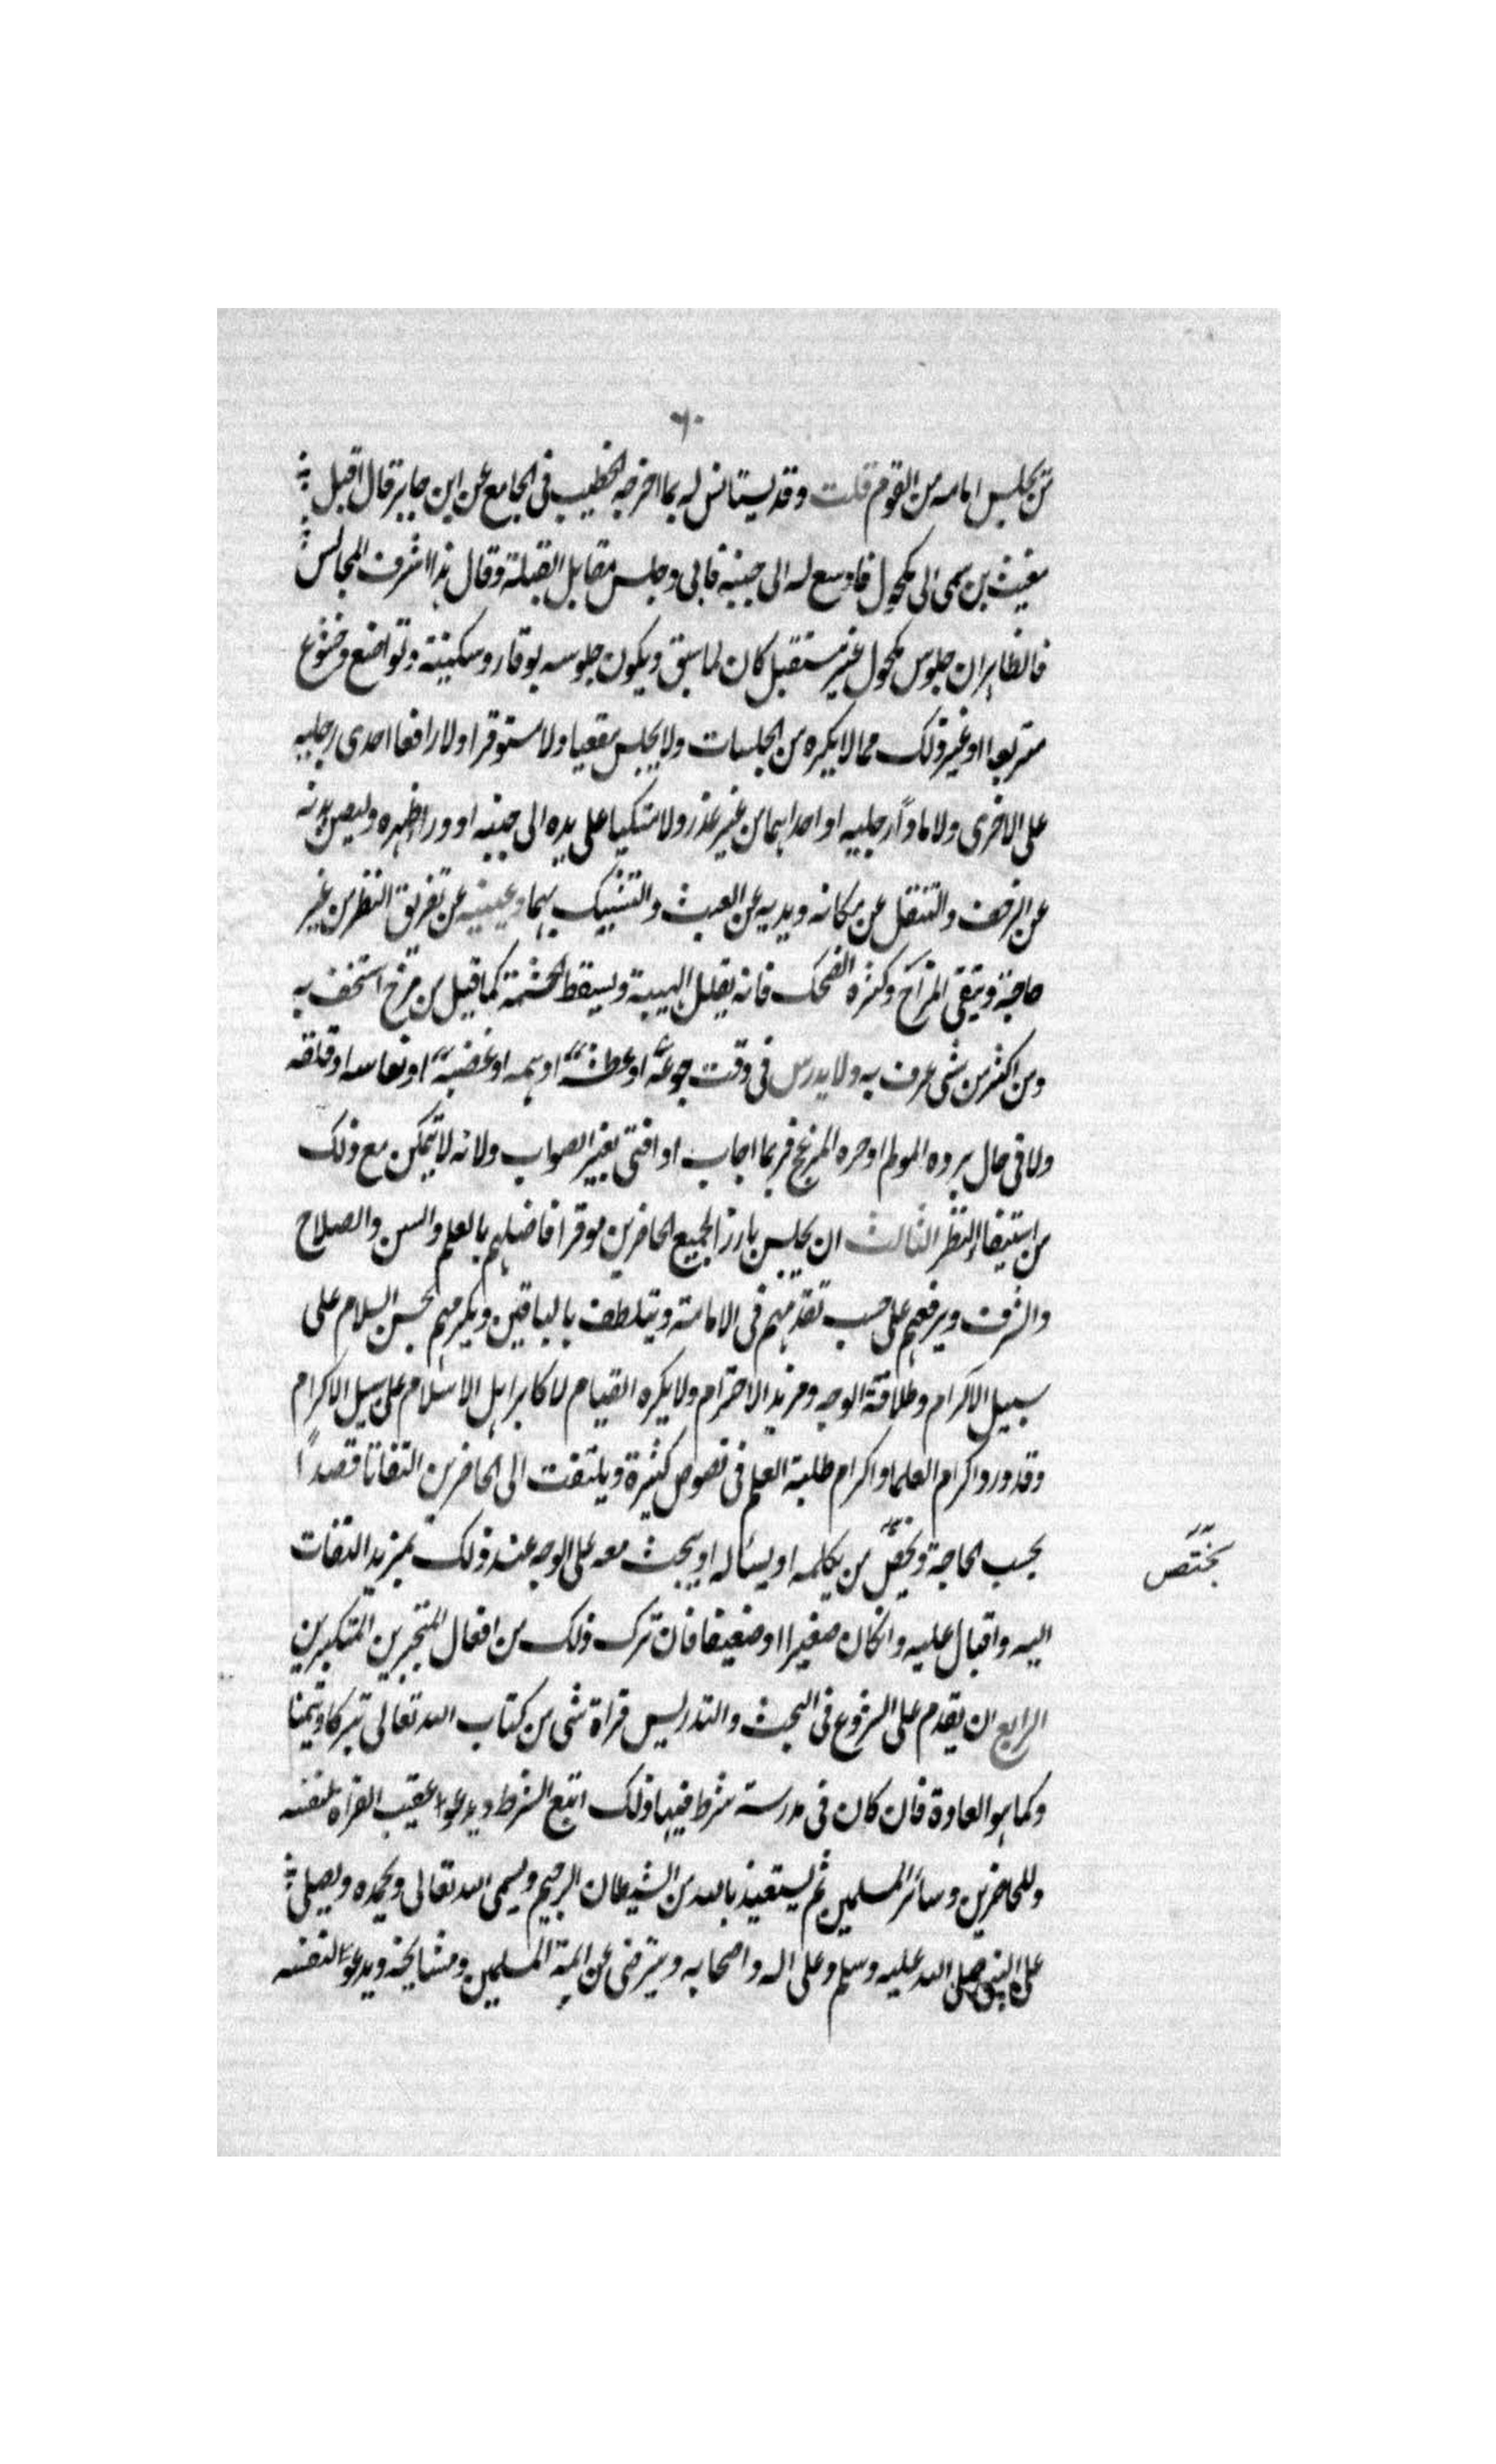 ٦٠
من يجلس امامه من القوم قلت وقد يستانس له بما اخرجه الخطيب فى الجامع عن ابن جابر قال اقبل
مغيث بن سمى الى مكحول فاوسع له الى جنبه فابى وجلس مقابل القبلة وقال هذا اشرف المجالس
فالظاهر ان جلوس مكحول غير مستقبل كان لما سبق ويكون جلوسه بوقار وسكينة وتواضع وخشوع
متربعا او غير ذلك مما لا يكره من الجلسات ولا يجلس مقعيا ولا مستوفزا ولا رافعا احدى رجليه
على الاخرى ولا مادًا رجليه او احداهما من غير عذر ولا متكيا على يده الى جنبه او وراء ظهره وليصن بدنه
عن الزحف والتنقل عن مكانه ويديه عن العبث والتشبيك بهما وعينيه عن تفريق النظر من غير
حاجة ويتقى المزاح وكثرة الضحك فانه يقلل الهيبة ويسقط الحشمة كما قيل من مزح استخف به
ومن اكثر من شى عرف به ولا يدرس فى وقت جوعه او عطشه او همه او غضبه او نعاسه او قلقه
ولا فى حال برده المولم او حره المزعج فربما اجاب او افتى بغير الصواب ولانه لا يتمكن مع ذلك
من استيفاء النظر الثالث ان يجلس بارزا لجميع الحاضرين موقرا فاضلهم بالعلم والسن والصلاح
والشرف ويرفعهم على حسب تقدمهم فى الامامة ويتلطف بالباقين ويكرمهم بحسن السلام على
سبيل الاكرام وطلاقة الوجه ومزيد الاحترام ولا يكره القيام لاكابر اهل الاسلام على سبيل الاكرام
وقد ورد اكرام العلما واكرام طلبة العلم فى نصوص كثيرة ويلتفت الى الحاضرين التفاتا قصدًا
بحسب الحاجة ويخص من يكلمه او يسأله او يبحث معه على الوجه عند ذلك بمزيد التفات
يختص
اليه واقبال عليه وانكان صغيرا او ضعيفا فان ترك ذلك من افعال المتجبرين المتكبرين
الرابع ان يقدم على الشروع فى البحث والتدريس قراة شى من كتاب الله تعالى تبركا وتيمنا
وكما هو العادة فان كان فى مدرسة شرط فيها ذلك اتبع الشرط ويدعوا عقيب القراه لنفسه
وللحاضرين وسائر المسلمين ثم يستعيذ بالله من الشيطان الرجيم ويسمى الله تعالى ويحمده ويصلى
على النبى صلى الله عليه وسلم وعلى اله واصحابه ويترضى عن ايمة المسلمين ومشايخه ويدعوا لنفسه